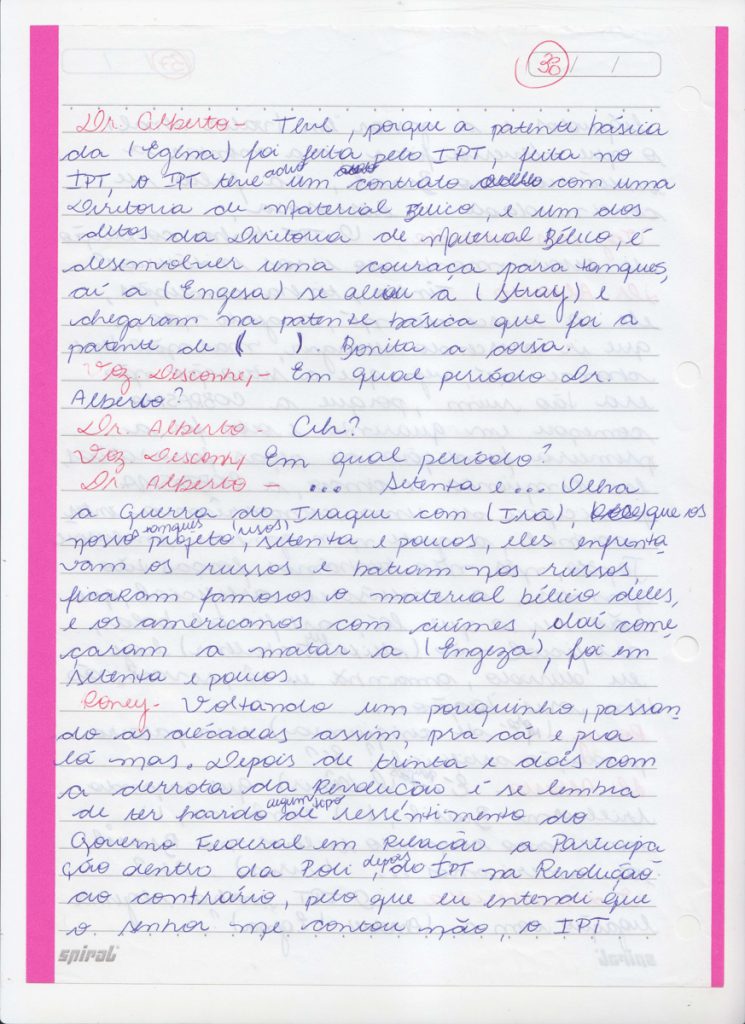 38 / /
Dr. Alberto - Teve, porque a patente básica
da (Egena) foi feita pelo IPT, feita no
IPT, o IPT teve um contrato com uma
Diretoria de Material Bélico, e um dos
deles da Diretoria de Material Bélico, é
desenvolver uma couraça para tanques,
aí a (Engesa) se aleou à (Stray) e
chegaram na patente básica que foi a
patente de ( ). Bonita a coisa.
Voz. Desconhe, - Em qual período Dr.
Alberto?
Dr. Alberto - Ah?
Voz. Desconh, Em qual período?
Dr Alberto - ... Setenta e... Olha
a Guerra do Iraque com (Irã), que os
nosso tanques projeto, (risos) setenta e poucos, eles enfrenta
vam os russos e batiam nos russos,
ficaram famosos o material bélico deles,
e os americanos com ciúmes, daí come
çaram a matar a (Engeza), foi em
setenta e poucos.
Roney - Voltando um pouquinho, passan-
do as décadas assim, pra cá e pra
lá mas. Depois de trinta e dois com
a derrota da Revolução é se lembra
de ter havido algum tipo de ressentimento do
Governo Federal em Relação a Participa
ção dentro da Poli, depois do IPT na Revolução
ao contrário, pelo que eu entendi que
o senhor me contou não, o IPT
spiral